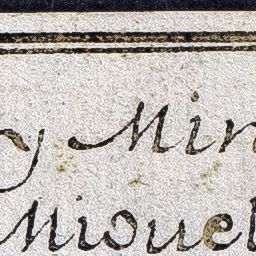 y Min
Miguel